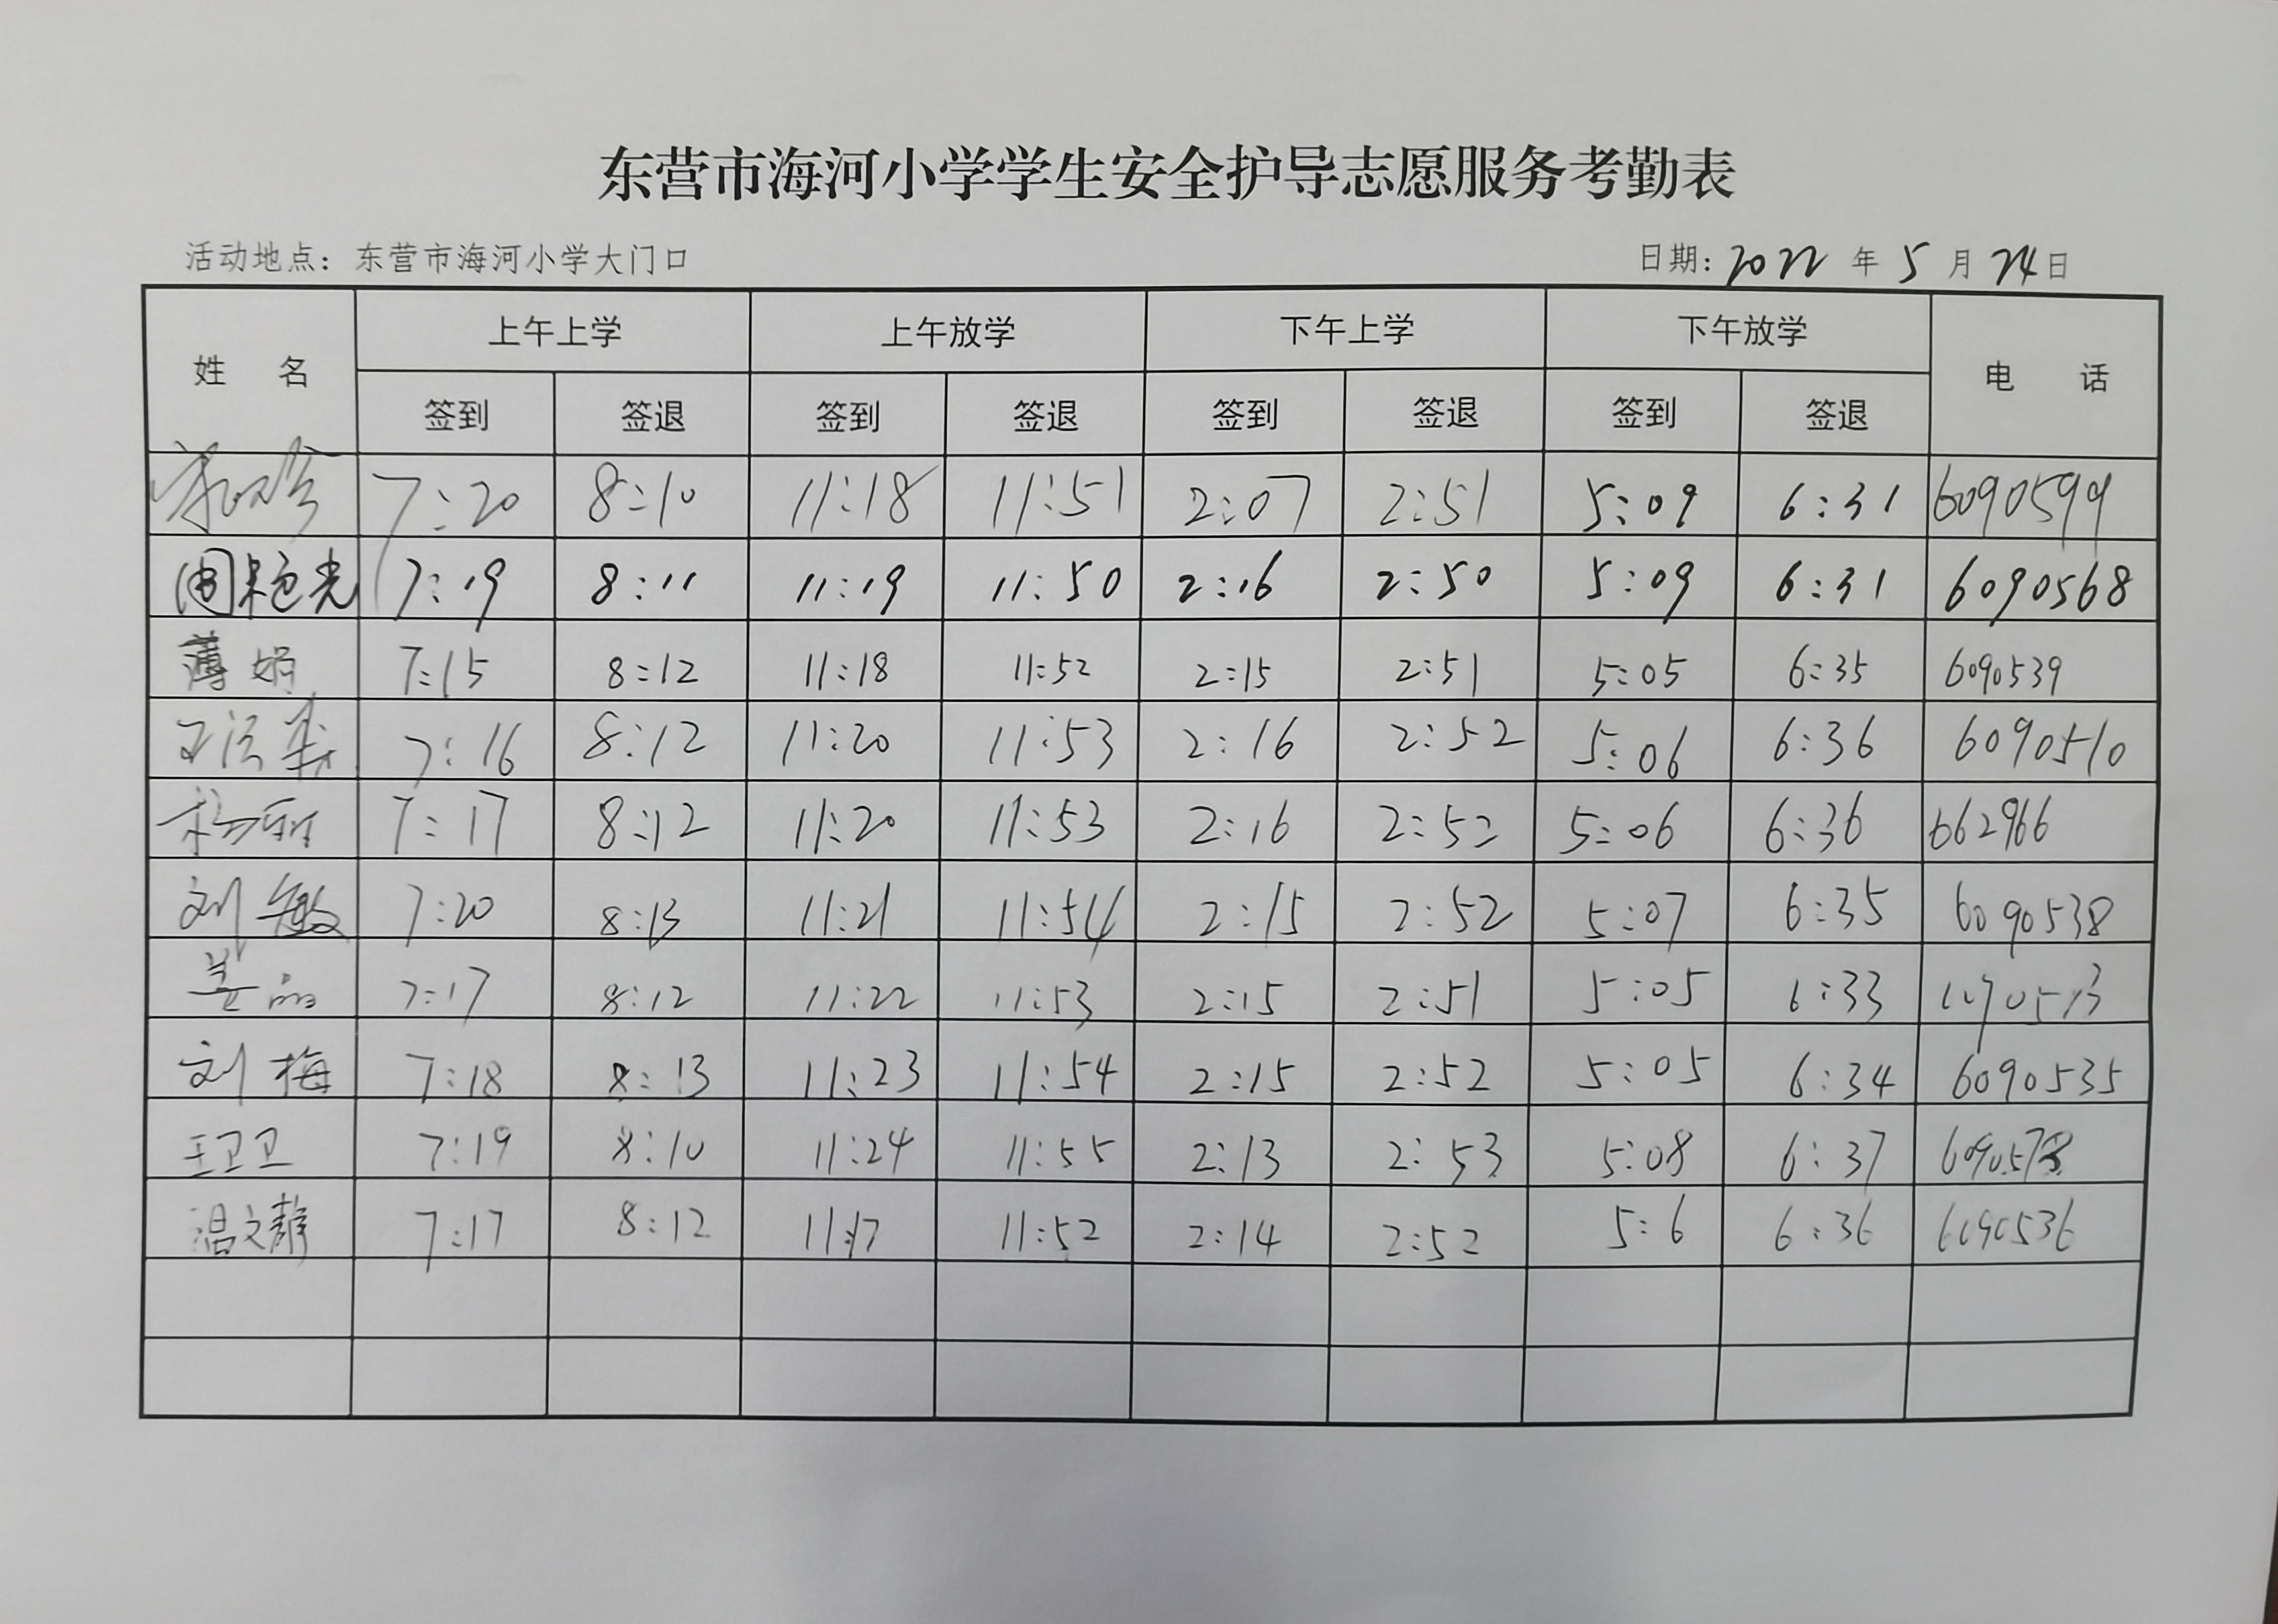 东营市海河小学学生安全护导志愿服务考勤表
活动地点：东营市海河小学大门口 日期：2022 年 5 月 24 日
姓 名 上午上学 上午放学 下午上学 下午放学 电 话
签到 签退 签到 签退 签到 签退 签到 签退
7:20 8:10 11:18 11:51 2:07 2:51 5:09 6:31 6090599
7:19 8:11 11:19 11:50 2:16 2:50 5:09 6:31 6090568
薄娟 7:15 8:12 11:18 11:52 2:15 2:51 5:05 6:35 6090539
7:16 8:12 11:20 11:53 2:16 2:52 5:06 6:36 6090510
7:17 8:12 11:20 11:53 2:16 2:52 5:06 6:36 662966
刘敏 7:20 8:13 11:21 11:54 2:15 2:52 5:07 6:35 6090538
7:17 8:12 11:22 11:53 2:15 2:51 5:05 6:33
刘梅 7:18 8:13 11:23 11:54 2:15 2:52 5:05 6:34 6090535
王卫卫 7:19 8:10 11:24 11:55 2:13 2:53 5:08 6:37
温文静 7:17 8:12 11:17 11:52 2:14 2:52 5:6 6:36 6090536